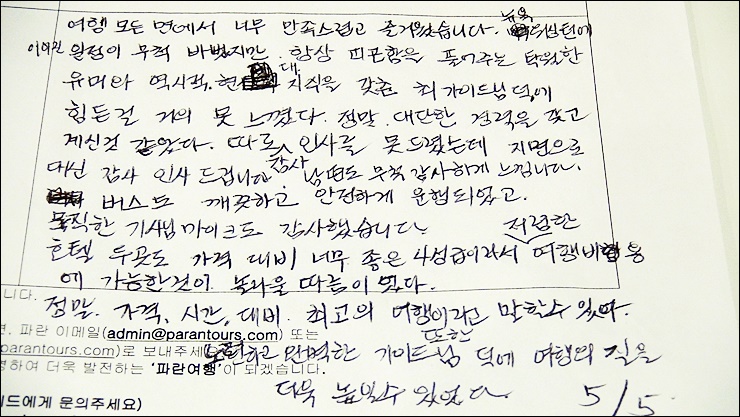 여행 모든 면에서 너무 만족스럽고 즐거웠습니다. 뉴욕 워싱턴에
이어진 일정이 무척 바빴지만 항상 피곤함을 풀어주는 탁월한
유머와 역사적, 현대 지식을 갖춘 최 가이드님 덕에
힘든걸 거의 못 느꼈다. 정말 대단한 경력을 갖고
계신것 같았다. 따로 인사를 못드렸는데 지면으로
대신 감사 인사 드립니다 감사 남편도 무척 감사하게 느낍니다.
버스도 깨끗하고 안전하게 운행되었고.
묵직한 기사님 마이크도 감사했습니다
호텔 두곳도 가격 대비 너무 좋은 4성급이라서 저렴한 여행비용
에 가능한것이 놀라울 따름이었다.
니다.
정말. 가격, 시간, 대비. 최고의 여행이라고 말할수 있다.
변. 파란 이메일(admin@parantours.com) 또는
parantours.com)로 보내주세 노련하고 완벽한 가이드님 또한 덕에 여행의 질을
영하여 더욱 발전하는 '파란여행'이 되겠습니다.
더욱 높일수 있었다. 5/5
드에게 문의주세요)